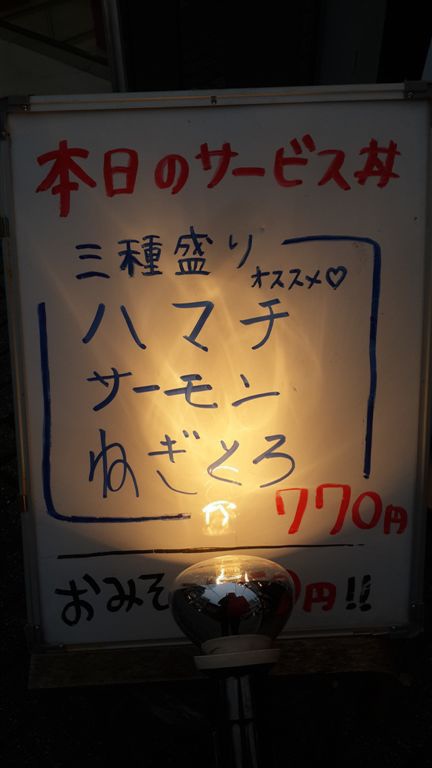 本日のサービス丼
三種盛り
オススメ♡
ハマチ
サーモン
ねぎとろ
770円
おみそ 0円!!